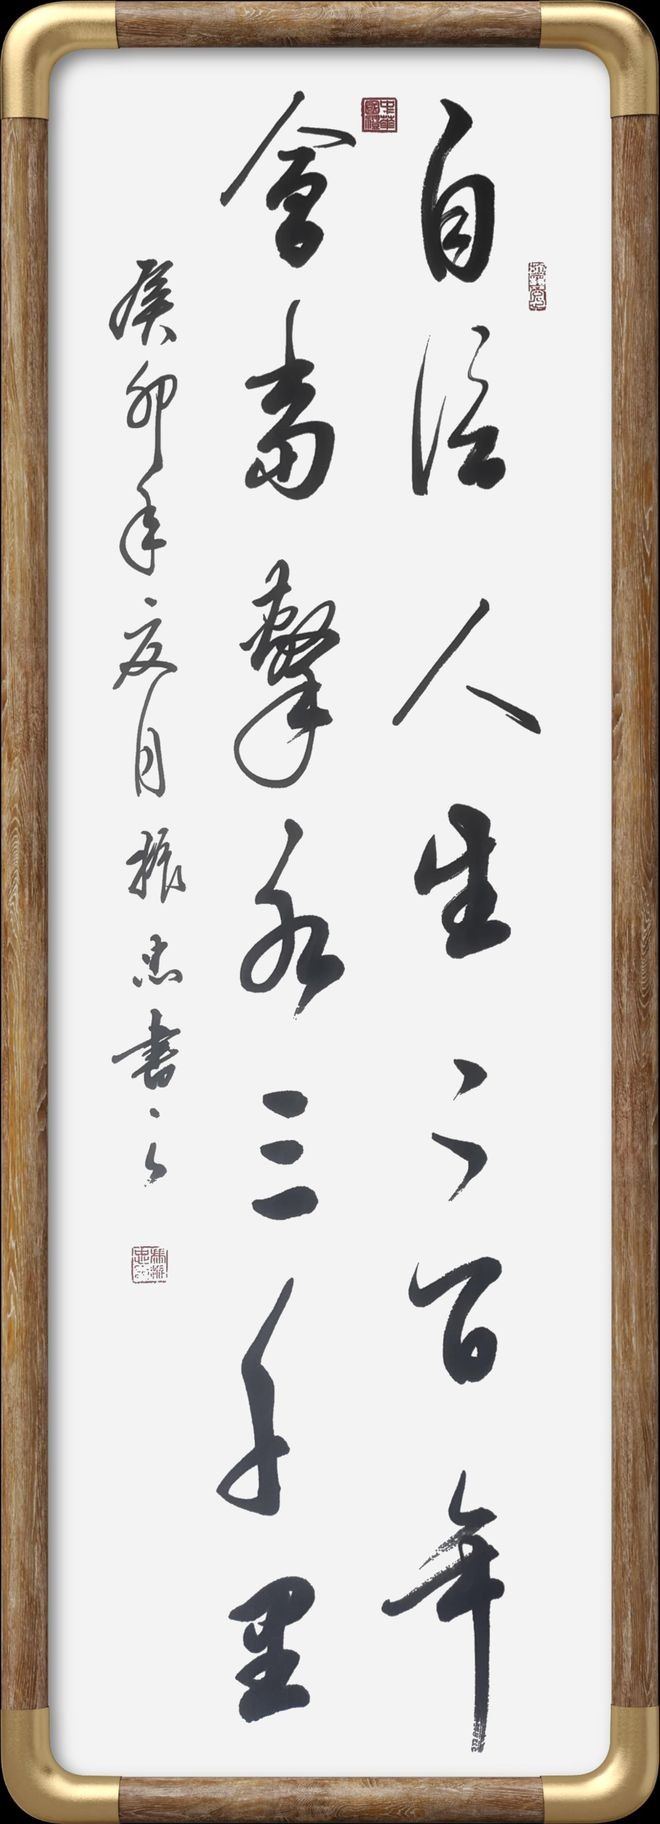 自信人生二百年
會當擊水三千里
癸卯年夏月振忠書之